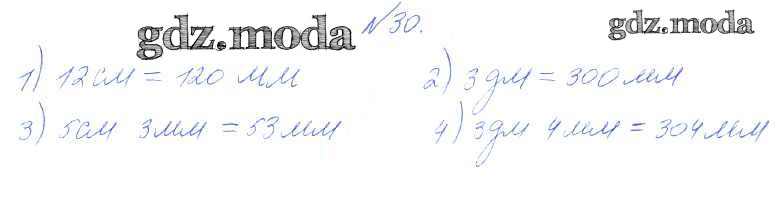 №30.
gdz.moda gdz.moda
1) 12см = 120 мм 2) 3 дм = 300 мм
3) 5см 3мм = 53мм 4) 3дм 4мм = 304мм